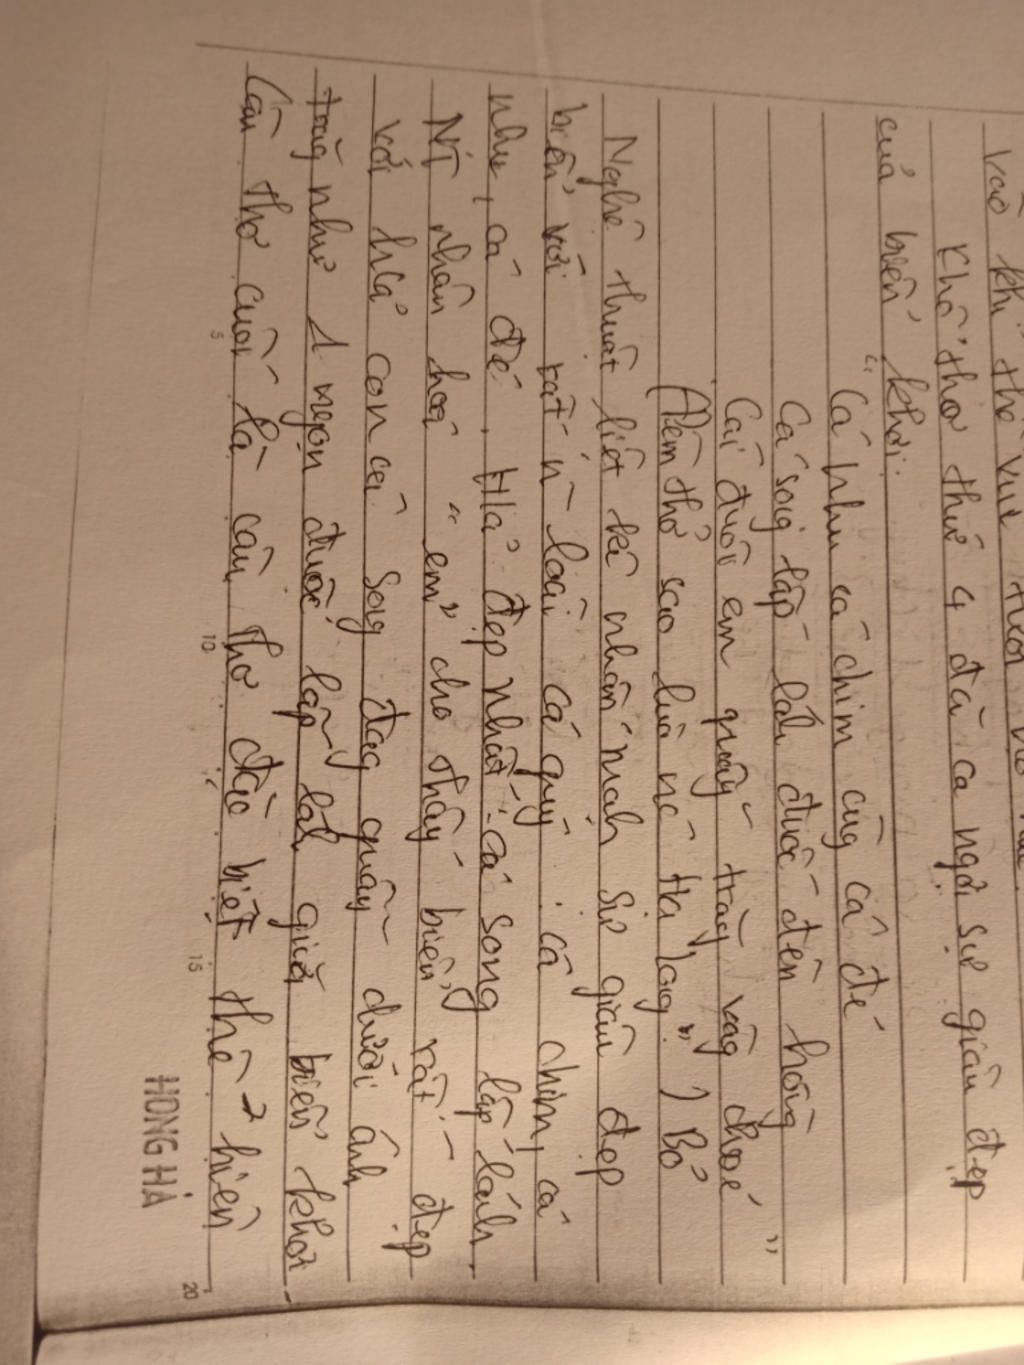 vào khí thế vui tươi
Khổ thơ thứ 4 đã ca ngợi sự giàu đẹp
của biển khơi:
"Cá nhụ cá chim cùg cá đé
Cá sog lấp lánh đuốc đen hồng
Cái đuôi em quẫy trăg vàg choé"
(Đêm thở sao lùa nc Hạ Log") Bỏ
Nghệ thuật liệt kê nhấn mạnh sự giàu đẹp
biển với rất n loài cá quý: cá chim, cá
nhụ, cá đé. Hả đẹp nhất: cá song lấp lánh
NT nhân hoá "em" cho thấy biển rất đẹp
với hả con cá sog đag quẫy dưới ánh
trăg như 1 ngọn đuốc lấp lánh giữa biển khơi
Câu thơ cuối là câu thơ đặc biệt thể hiện
5
10
15
20
HONG HA